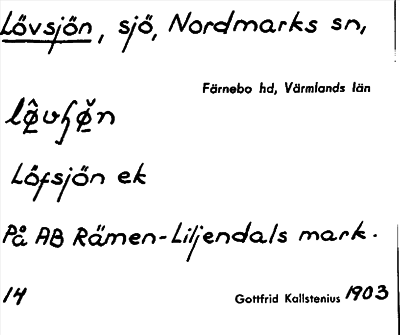 Lövsjön, sjö, Nordmarks sn,
Färnebo hd, Värmlands län
Löfsjön ek
På AB Rämen-Liljendals mark.
14 Gottfrid Kallstenius 1903